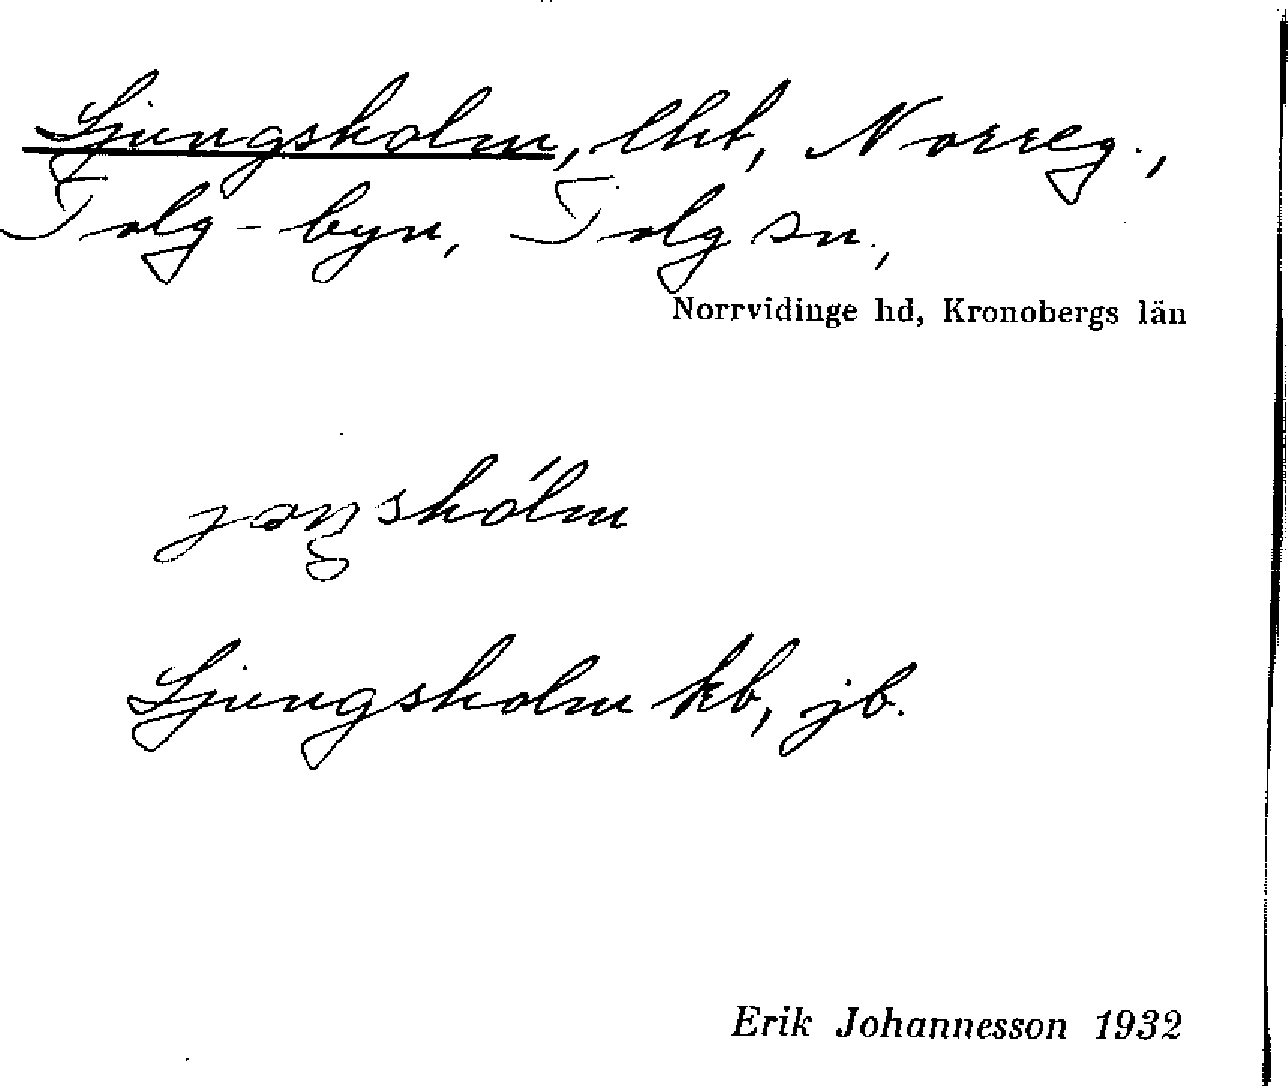 Ljungsholm, lht, Norreg.,
Tolg-byn, Tolg sn.,
Norrvidinge hd, Kronobergs län
Ljungsholm kb, jb.
Erik Johannesson 1932